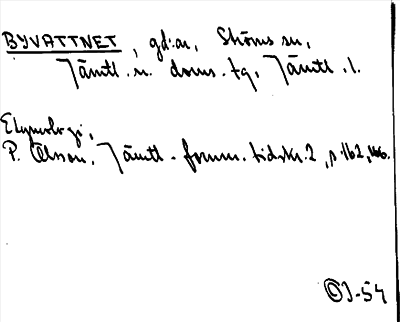 BYVATTNET, gd:ar, Ströms sn,
Jämtl. n. doms. tg, Jämtl. l.
Etymologi,
P. Olsson, Jämtl. fornm. tidskr. 2, p. 162, 166.
J-54